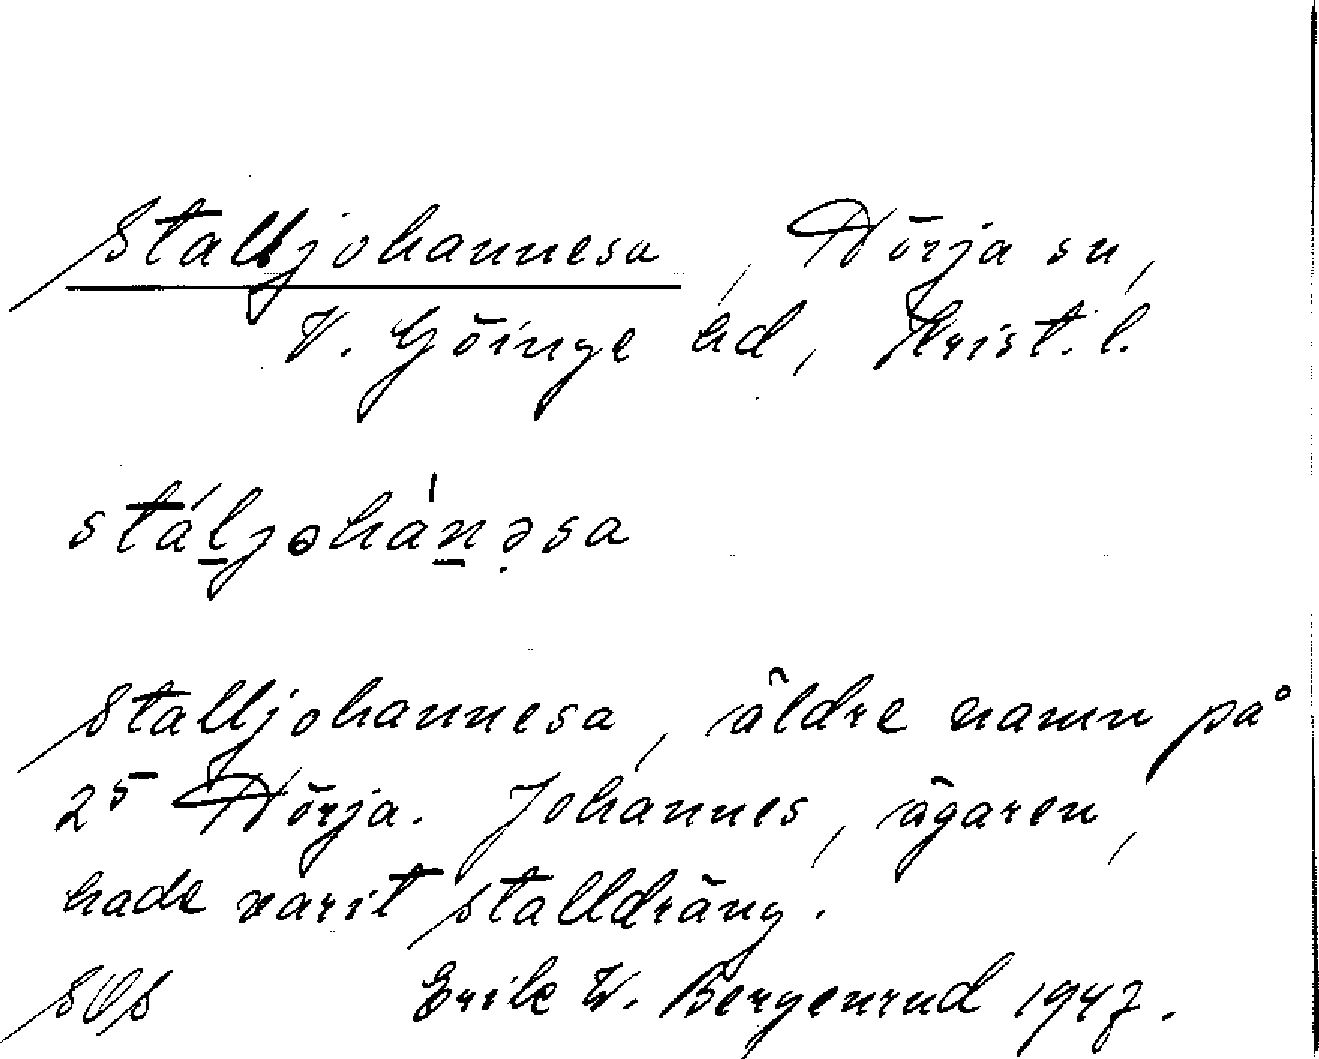 Stalljohannesa, Hörja sn,
V. Göinge hd, Krist. l.
stáljəhánəsa
Stalljohannesa, äldre namn på
2⁵ Hörja. Johannes, ägaren,
hade varit stalldräng.
Erik W. Bergenrud 1947.